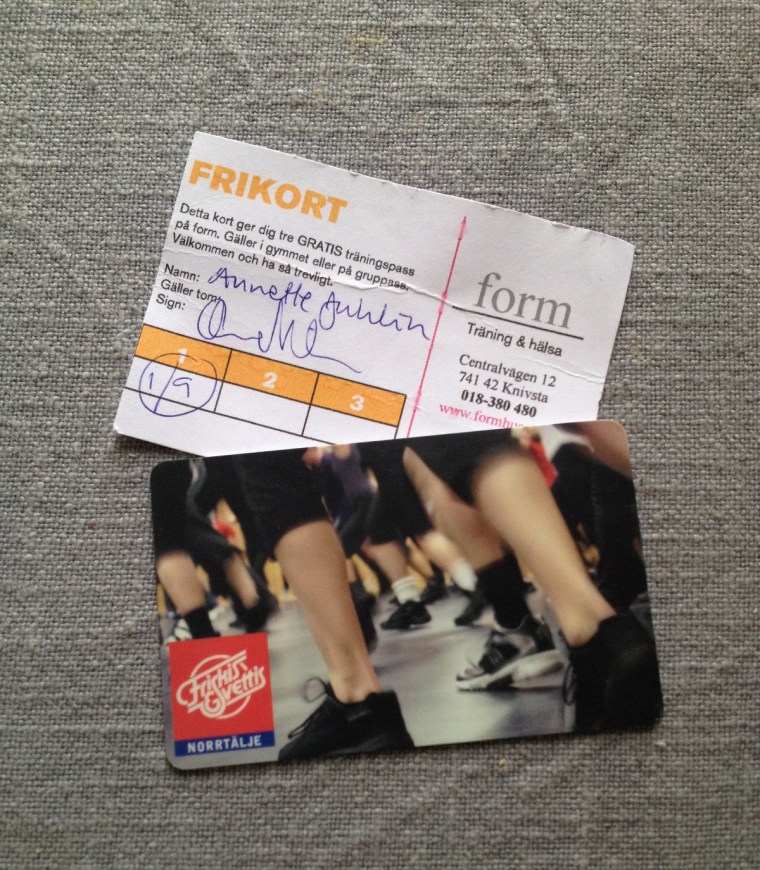 FRIKORT
Detta kort ger dig tre GRATIS träningspass
på form. Gäller i gymmet eller på gruppass.
Välkommen och ha så trevligt.
Namn: Annette
Gäller tom:
Sign:
1 2 3
1/9
form
Träning & hälsa
Centralvägen 12
741 42 Knivsta
018-380 480
www.formhu
Friskis
& Svettis
NORRTÄLJE